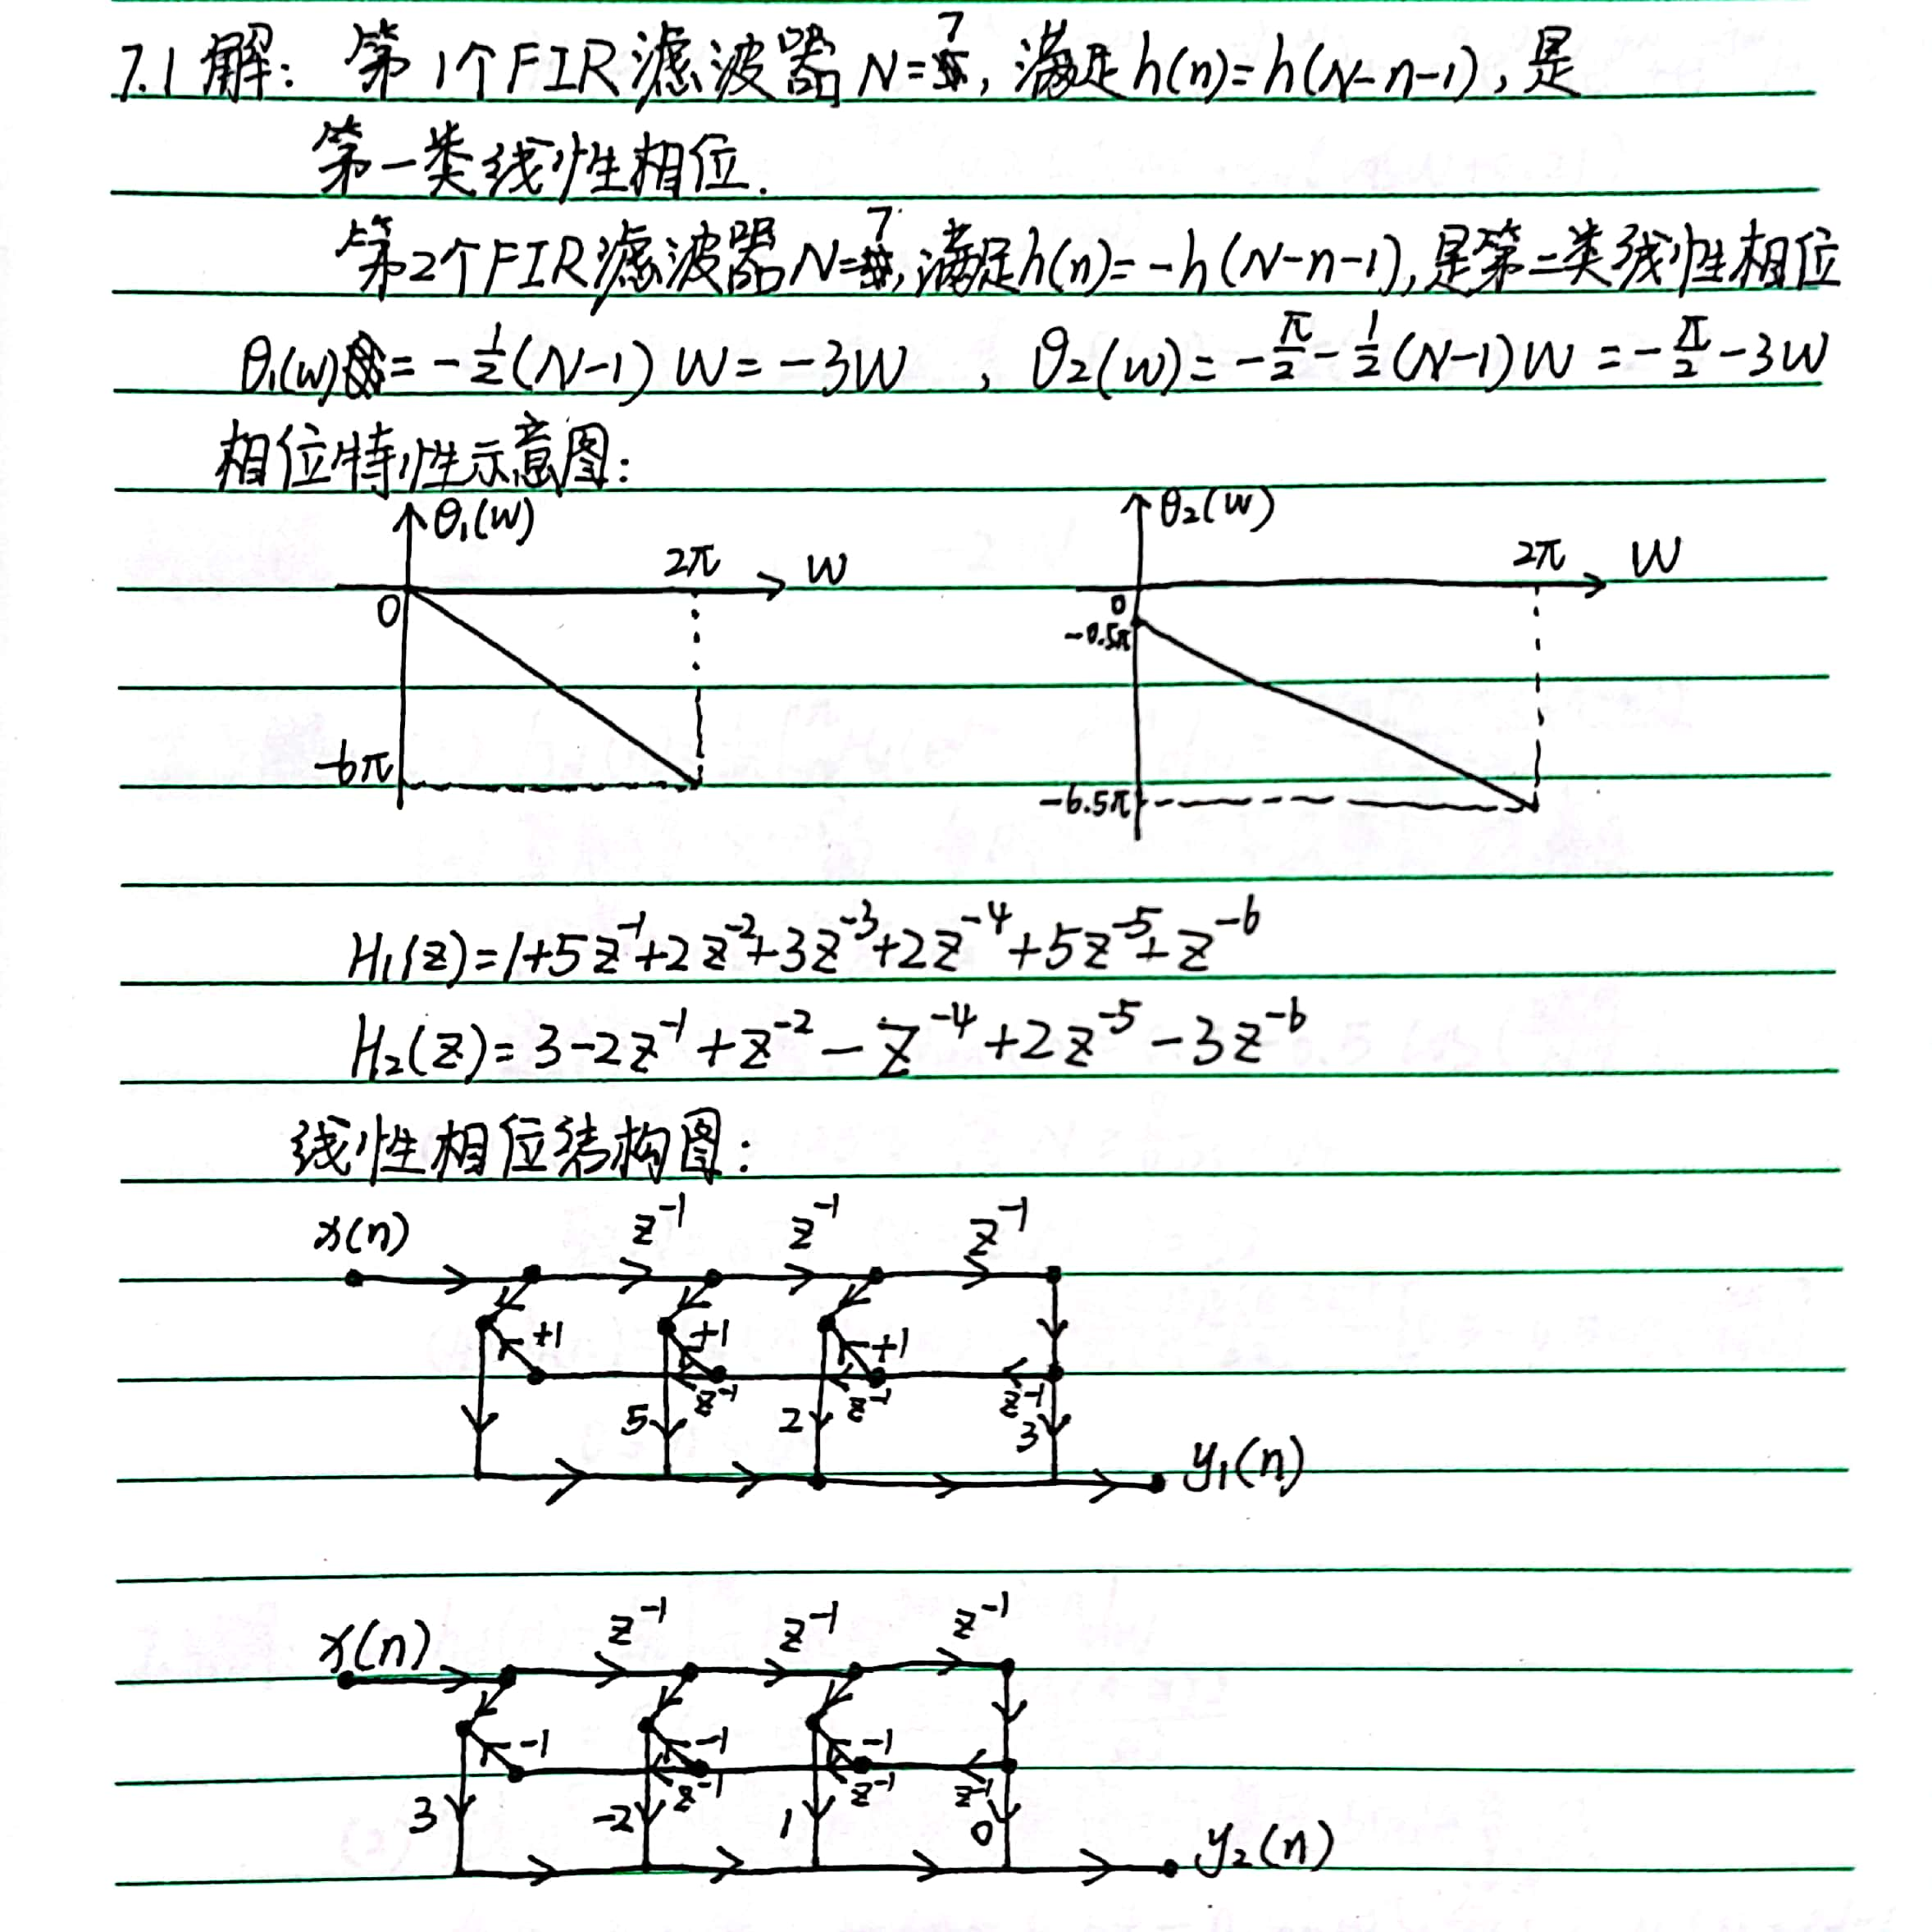 7.1 解: 第1个FIR滤波器N=7, 满足h(n)=h(N-n-1), 是
第一类线性相位.
第2个FIR滤波器N=7, 满足h(n)=-h(N-n-1), 是第二类线性相位
θ₁(w)=-½(N-1)W=-3W , θ₂(w)=-π/2-½(N-1)W=-π/2-3W
相位特性示意图:
θ₁(w) θ₂(w)
2π W 2π W
0 0
-0.5π
-6π
-6.5π
H₁(z)=1+5z⁻¹+2z⁻²+3z⁻³+2z⁻⁴+5z⁻⁵+z⁻⁶
H₂(z)=3-2z⁻¹+z⁻²-z⁻⁴+2z⁻⁵-3z⁻⁶
线性相位结构图:
x(n) z⁻¹ z⁻¹ z⁻¹
+1 +1 +1
z⁻¹ z⁻¹ z⁻¹
5 2 3
y₁(n)
x(n) z⁻¹ z⁻¹ z⁻¹
-1 -1 -1
z⁻¹ z⁻¹ z⁻¹
3 -2 1 0
y₂(n)